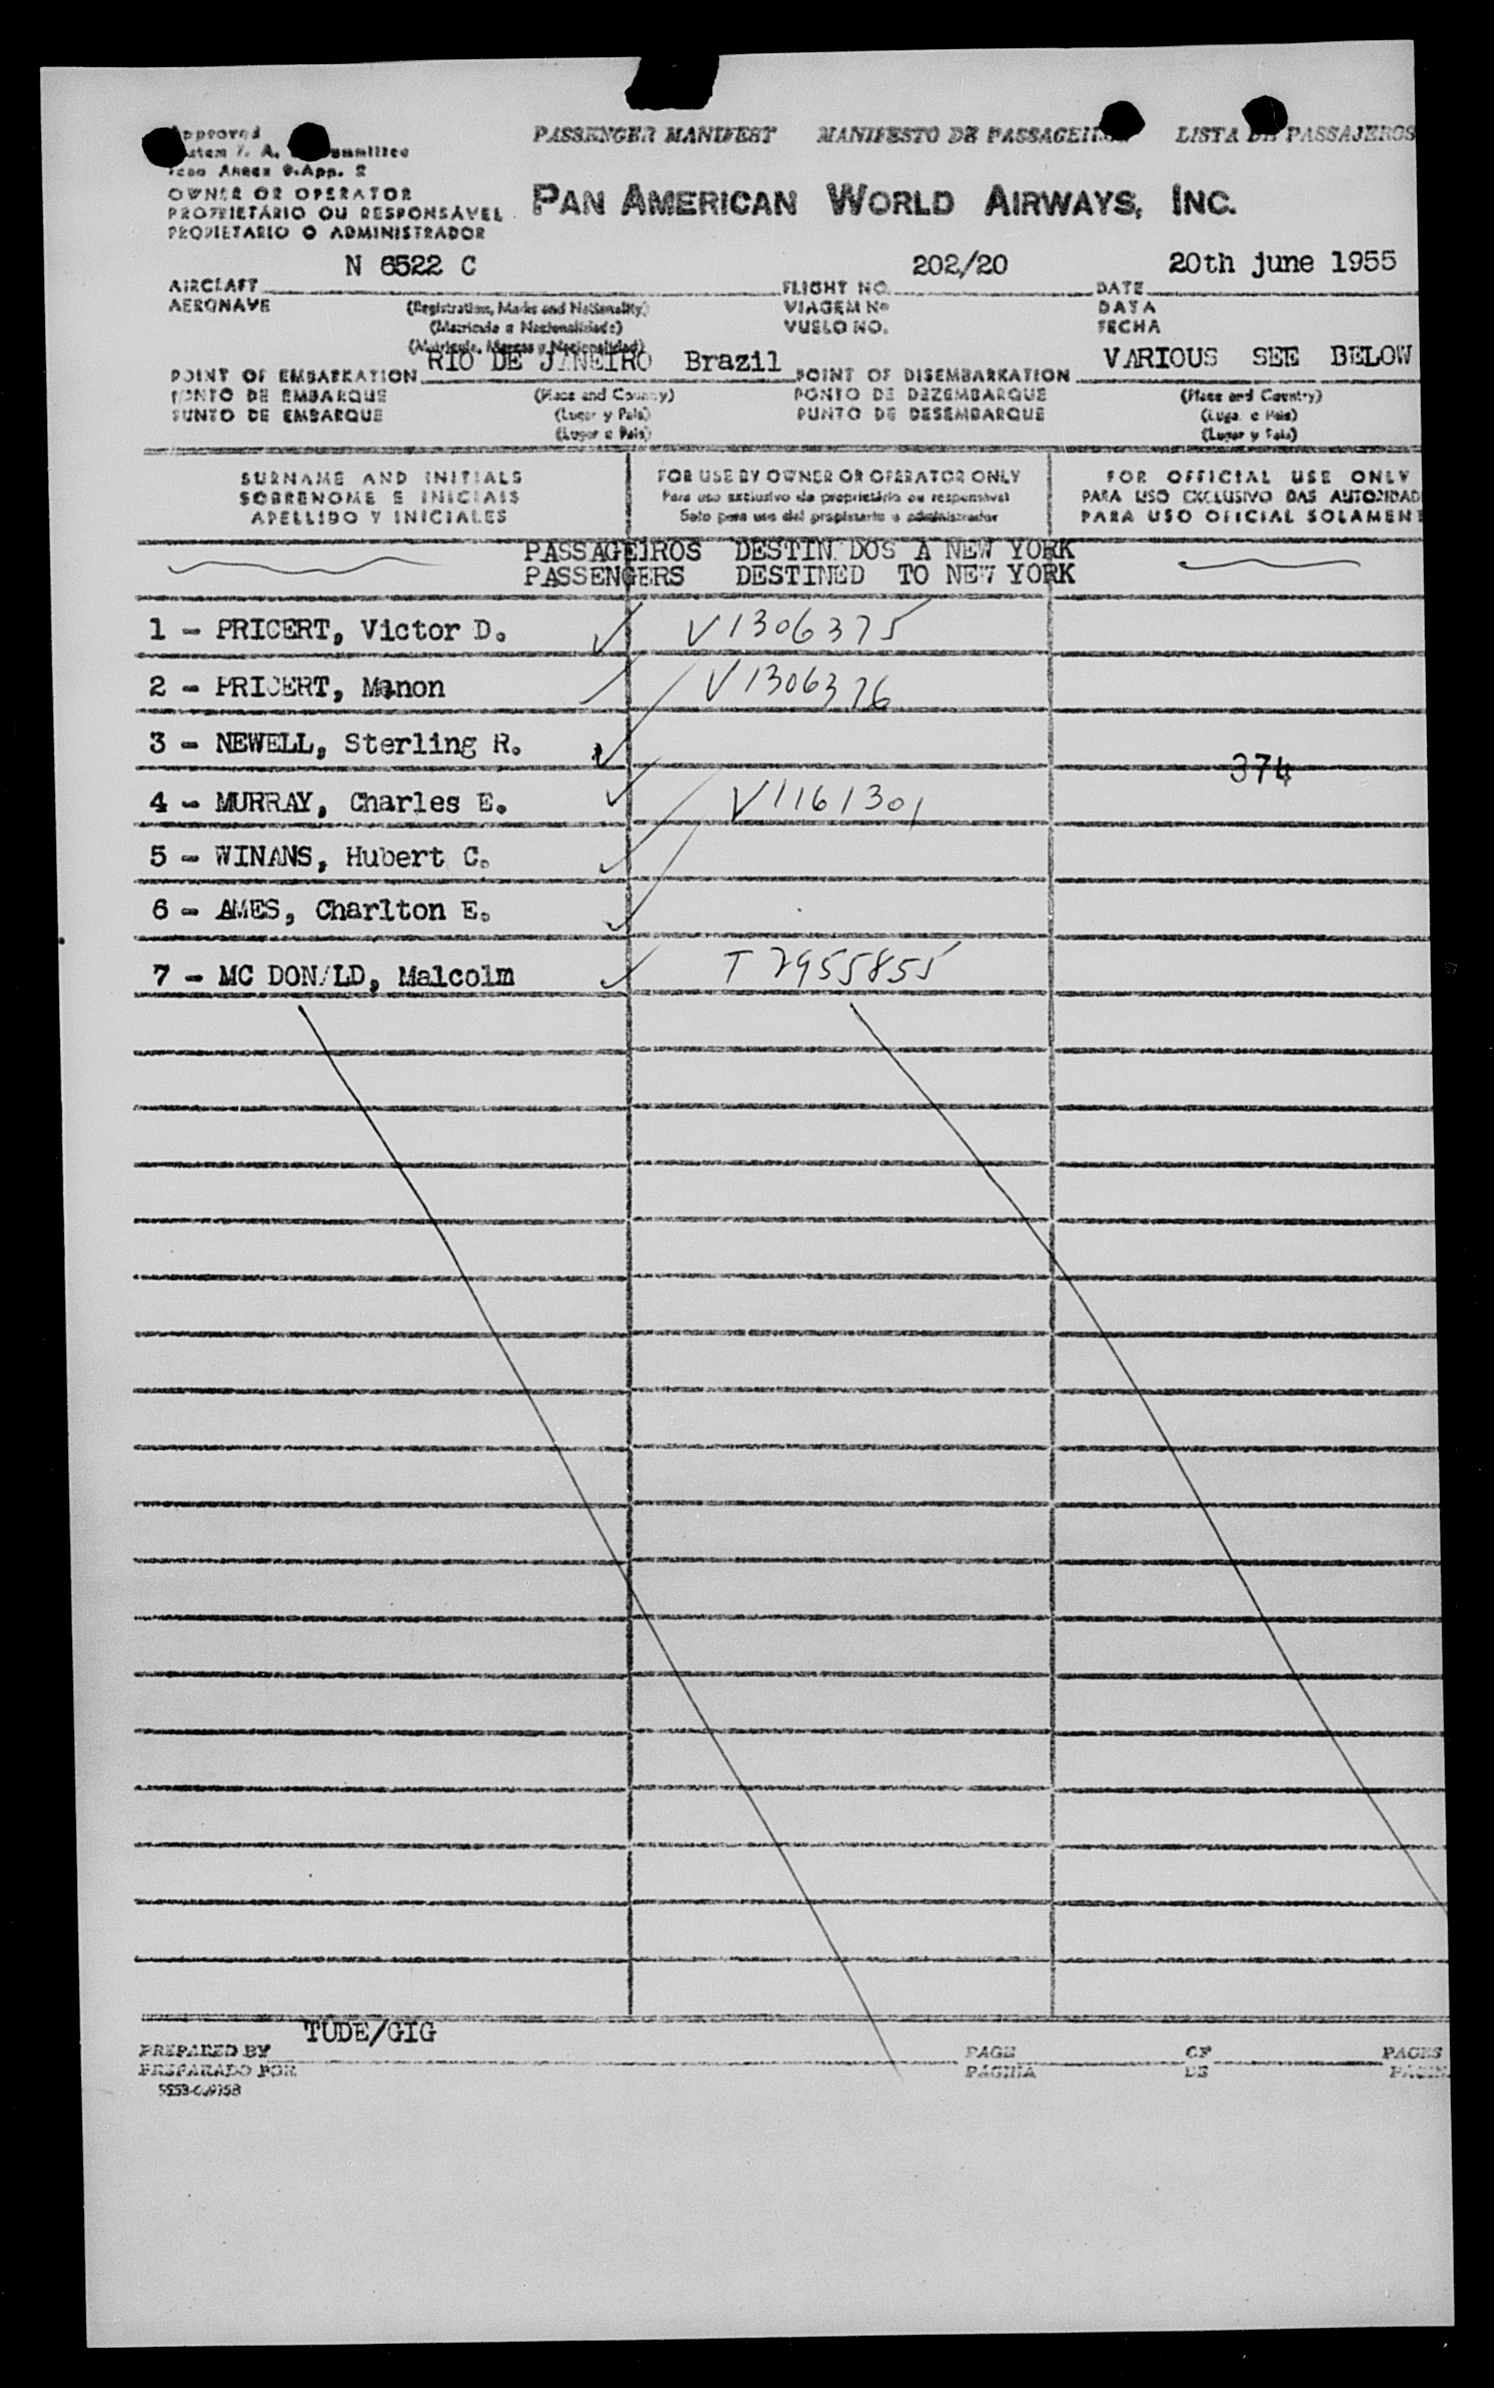 Approved
PASSENGER MANIFEST MANIFESTO DE PASSAGEIROS LISTA DE PASSAJEROS
Annex 9.App. 2
OWNER OR OPERATOR
PROPRIETÁRIO OU RESPONSÁVEL
PROPIETARIO O ADMINISTRADOR
PAN AMERICAN WORLD AIRWAYS, INC.
N 6522 C 202/20 20th june 1955
AIRCRAFT FLIGHT NO. DATE
AERONAVE (Registration, Marks and Nationality) VIAGEM Nº DATA
(Matricula e Nacionalidade) VUELO NO. FECHA
(Matricula, Marcas y Nacionalidad)
RIO DE JANEIRO Brazil VARIOUS SEE BELOW
POINT OF EMBARKATION POINT OF DISEMBARKATION
PONTO DE EMBARQUE (Place and Country) PONTO DE DEZEMBARQUE (Place and Country)
PUNTO DE EMBARQUE (Lugar y Pais) PUNTO DE DESEMBARQUE (Lugar e Pais)
(Lugar e Pais) (Lugar y Pais)
SURNAME AND INITIALS FOR USE BY OWNER OR OPERATOR ONLY FOR OFFICIAL USE ONLY
SOBRENOME E INICIAIS Para uso exclusivo do proprietário ou responsável PARA USO EXCLUSIVO DAS AUTORIDAD
APELLIDO Y INICIALES Solo para uso del propietario o administrador PARA USO OFICIAL SOLAMENT
PASSAGEIROS DESTINADOS A NEW YORK
PASSENGERS DESTINED TO NEW YORK
1 - PRICERT, Victor D. ✓ V1306375
2 - PRICERT, Manon V1306376
3 - NEWELL, Sterling R. ✓
374
4 - MURRAY, Charles E. ✓ V1161301
5 - WINANS, Hubert C. ✓
6 - AMES, Charlton E. ✓
7 - MC DONALD, Malcolm ✓ T2955855
TUDE/GIG
PREPARED BY PAGE OF PAGES
PREPARADO POR PAGINA DE PAGIN